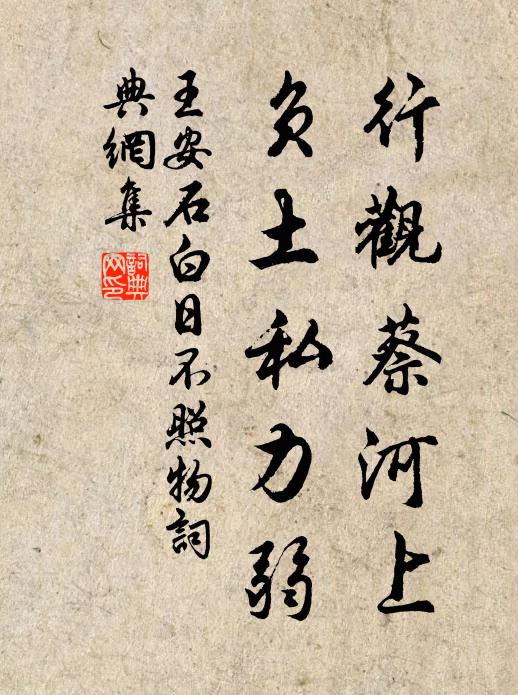 行觀蔡河上
負土私力弱
王安石白日不照物詞
典網集
詞典
网印